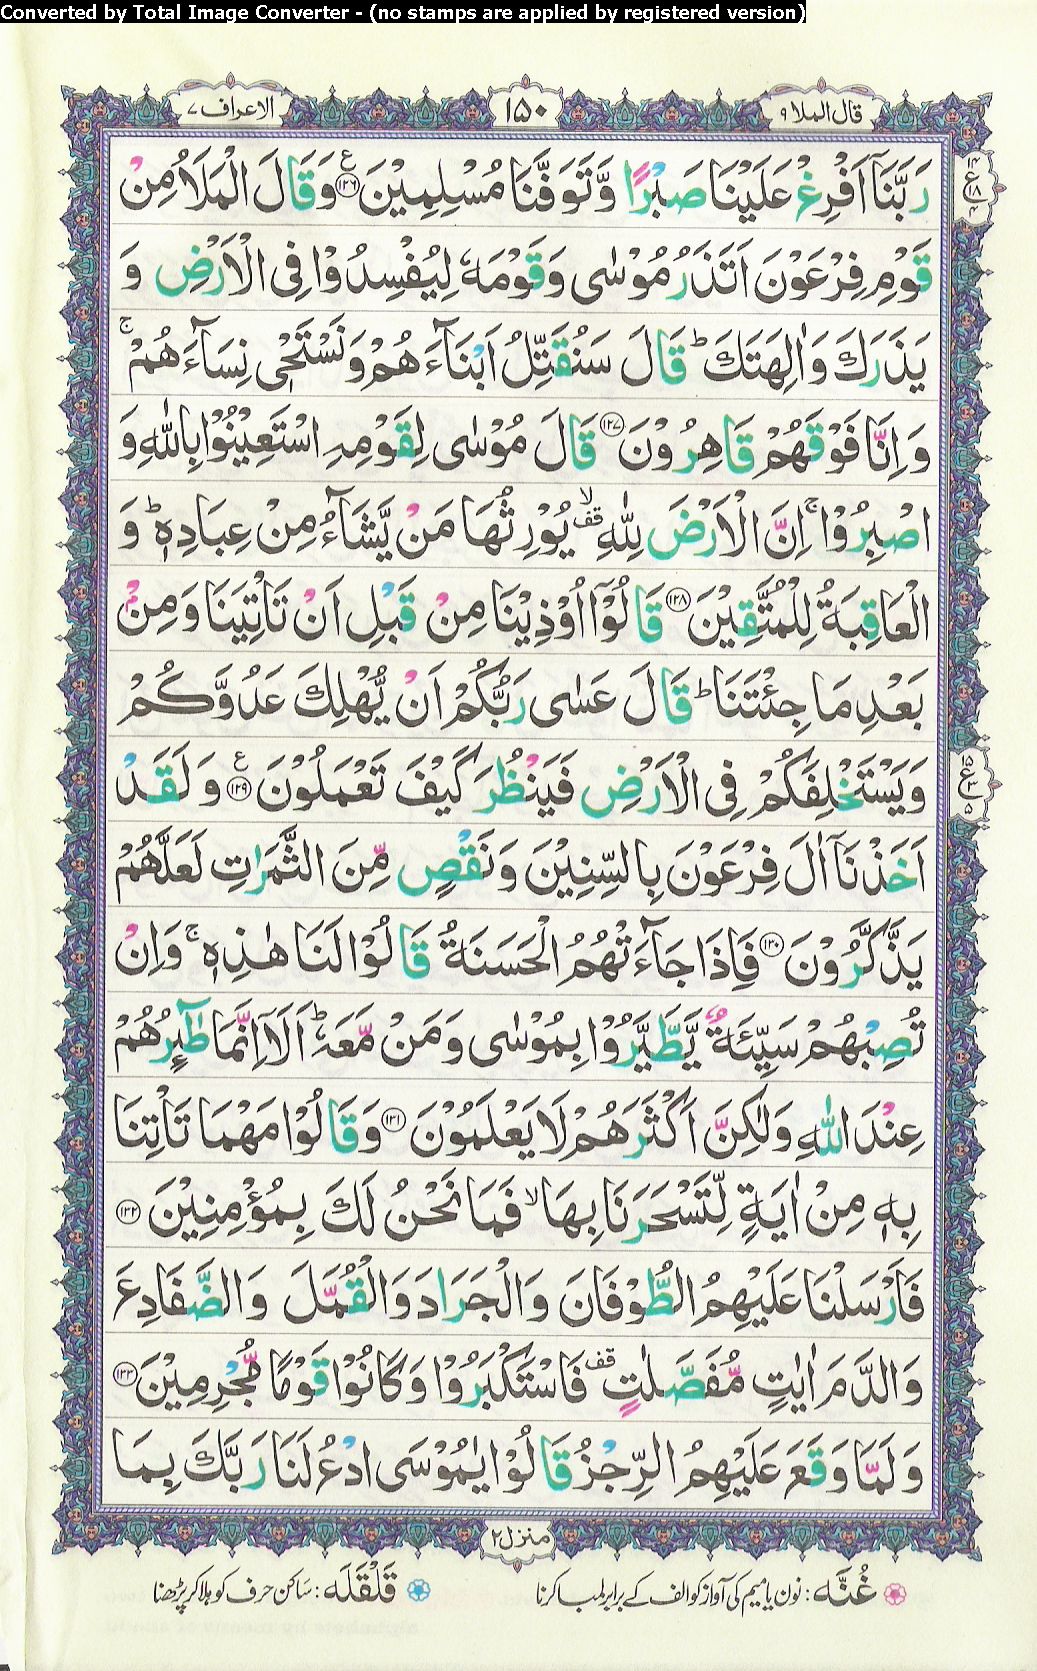 Converted by Total Image Converter - (no stamps are applied by registered version)
قال الملا ٩
١٥٠
الاعراف ٧
رَبَّنَاۤ اَفْرِغْ عَلَيْنَا صَبْرًا وَّتَوَفَّنَا مُسْلِمِيْنَ ۝١٢٦ وَقَالَ الْمَلَاُ مِنْ
قَوْمِ فِرْعَوْنَ اَتَذَرُ مُوْسٰى وَقَوْمَهٗ لِيُفْسِدُوْا فِى الْاَرْضِ وَ
يَذَرَكَ وَاٰلِهَتَكَ ؕ قَالَ سَنُقَتِّلُ اَبْنَآءَهُمْ وَنَسْتَحْىٖ نِسَآءَهُمْ ۚ
وَاِنَّا فَوْقَهُمْ قَاهِرُوْنَ ۝١٢٧ قَالَ مُوْسٰى لِقَوْمِهِ اسْتَعِيْنُوْا بِاللّٰهِ وَ
اصْبِرُوْا ۚ اِنَّ الْاَرْضَ لِلّٰهِ ۙقف يُوْرِثُهَا مَنْ يَّشَآءُ مِنْ عِبَادِهٖ ؕ وَ
الْعَاقِبَةُ لِلْمُتَّقِيْنَ ۝١٢٨ قَالُوْۤا اُوْذِيْنَا مِنْ قَبْلِ اَنْ تَاْتِيَنَا وَمِنْۢ
بَعْدِ مَا جِئْتَنَا ؕ قَالَ عَسٰى رَبُّكُمْ اَنْ يُّهْلِكَ عَدُوَّكُمْ
وَيَسْتَخْلِفَكُمْ فِى الْاَرْضِ فَيَنْظُرَ كَيْفَ تَعْمَلُوْنَ ۝١٢٩ وَلَقَدْ
اَخَذْنَاۤ اٰلَ فِرْعَوْنَ بِالسِّنِيْنَ وَنَقْصٍ مِّنَ الثَّمَرٰتِ لَعَلَّهُمْ
يَذَّكَّرُوْنَ ۝١٣٠ فَاِذَا جَآءَتْهُمُ الْحَسَنَةُ قَالُوْا لَنَا هٰذِهٖ ۚ وَاِنْ
تُصِبْهُمْ سَيِّئَةٌ يَّطَّيَّرُوْا بِمُوْسٰى وَمَنْ مَّعَهٗ ؕ اَلَاۤ اِنَّمَا طٰٓئِرُهُمْ
عِنْدَ اللّٰهِ وَلٰكِنَّ اَكْثَرَهُمْ لَا يَعْلَمُوْنَ ۝١٣١ وَقَالُوْا مَهْمَا تَاْتِنَا
بِهٖ مِنْ اٰيَةٍ لِّتَسْحَرَنَا بِهَا ۙ فَمَا نَحْنُ لَكَ بِمُؤْمِنِيْنَ ۝١٣٢
فَاَرْسَلْنَا عَلَيْهِمُ الطُّوْفَانَ وَالْجَرَادَ وَالْقُمَّلَ وَالضَّفَادِعَ
وَالدَّمَ اٰيٰتٍ مُّفَصَّلٰتٍ قف فَاسْتَكْبَرُوْا وَكَانُوْا قَوْمًا مُّجْرِمِيْنَ ۝١٣٣
وَلَمَّا وَقَعَ عَلَيْهِمُ الرِّجْزُ قَالُوْا يٰمُوْسَى ادْعُ لَنَا رَبَّكَ بِمَا
منزل ٢
غُنَّه : نون یا میم کی آواز کو الف کے برابر لمبا کرنا
قَلْقَلَه : ساکن حرف کو ہلا کر پڑھنا